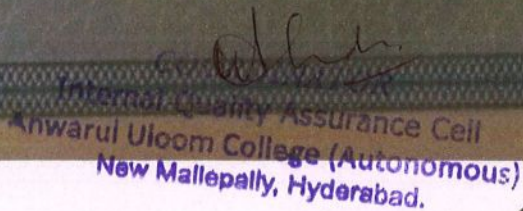 Internal Quality Assurance Cell
Anwarul Uloom College (Autonomous)
New Mallepally, Hyderabad.